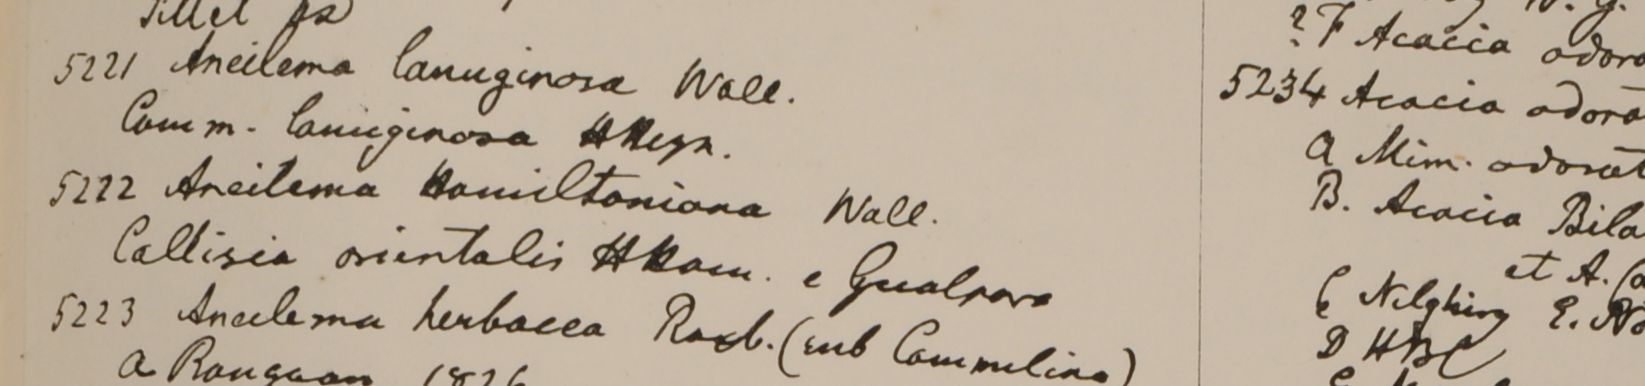 Sillet
5221 Aneilema lanuginosa Wall.
Comm. lanuginosa HHeyn.
5222 Aneilema Hamiltoniana Wall.
Callisia orientalis HHam. e Gualpara
5223 Aneilema herbacea Roxb. (sub Commelina)
a Rangoon 1826
? F Acacia odora
5234 Acacia odora
A Mim. odorat
B. Acacia Bila
et A.
C Nilghiry E. No
D HBC